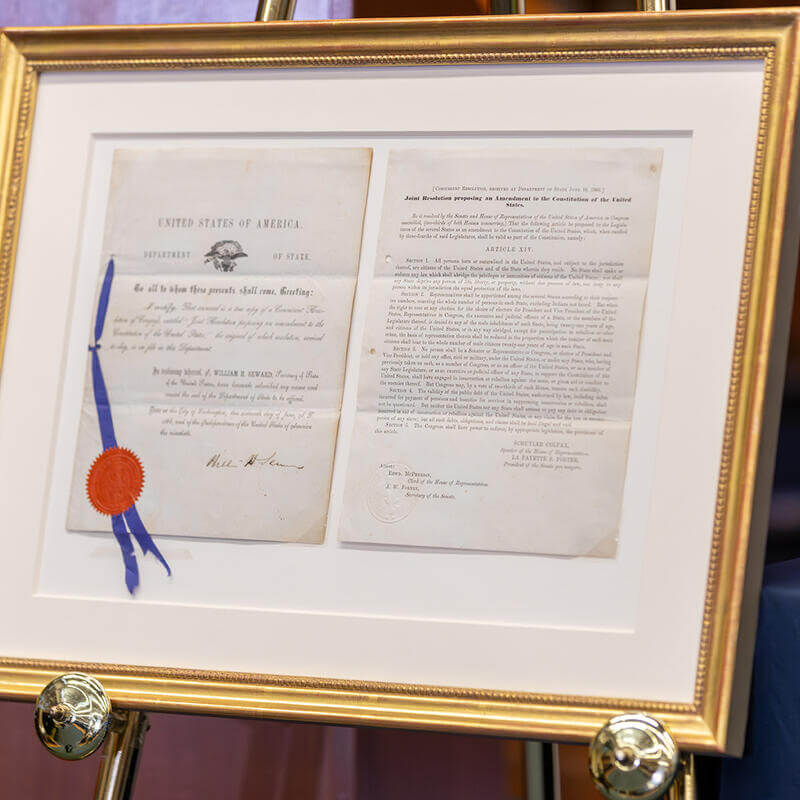 UNITED STATES OF AMERICA.
DEPARTMENT OF STATE.
To all to whom these presents shall come, Greeting:
I certify, That annexed is a true copy of a Concurrent Reso-
lution of Congress, entitled "Joint Resolution proposing an amendment to the
Constitution of the United States," the original of which resolution, received
to-day, is on file in this Department.
In testimony whereof, I, WILLIAM H. SEWARD, Secretary of State
of the United States, have hereunto subscribed my name and
caused the seal of the Department of State to be affixed.
Done at the City of Washington, this sixteenth day of June, A. D.
and of the Independence of the United States of America
the ninetieth.
William H Seward
[CONCURRENT RESOLUTION, RECEIVED AT DEPARTMENT OF STATE JUNE 16, 1866.]
Joint Resolution proposing an Amendment to the Constitution of the United
States.
Be it resolved by the Senate and House of Representatives of the United States of America in Congress
assembled, (two-thirds of both Houses concurring,) That the following article be proposed to the Legisla-
tures of the several States as an amendment to the Constitution of the United States, which, when ratified
by three-fourths of said Legislatures, shall be valid as part of the Constitution, namely:
ARTICLE XIV.
SECTION 1. All persons born or naturalized in the United States, and subject to the jurisdiction
thereof, are citizens of the United States and of the State wherein they reside. No State shall make or
enforce any law which shall abridge the privileges or immunities of citizens of the United States; nor shall
any State deprive any person of life, liberty, or property, without due process of law, nor deny to any
person within its jurisdiction the equal protection of the laws.
SECTION 2. Representatives shall be apportioned among the several States according to their respect-
ive numbers, counting the whole number of persons in each State, excluding Indians not taxed. But when
the right to vote at any election for the choice of electors for President and Vice President of the United
States, Representatives in Congress, the executive and judicial officers of a State, or the members of the
Legislature thereof, is denied to any of the male inhabitants of such State, being twenty-one years of age,
and citizens of the United States, or in any way abridged, except for participation in rebellion or other
crime, the basis of representation therein shall be reduced in the proportion which the number of such male
citizens shall bear to the whole number of male citizens twenty-one years of age in such State.
SECTION 3. No person shall be a Senator or Representative in Congress, or elector of President and
Vice President, or hold any office, civil or military, under the United States, or under any State, who, having
previously taken an oath, as a member of Congress, or as an officer of the United States, or as a member of
any State Legislature, or as an executive or judicial officer of any State, to support the Constitution of the
United States, shall have engaged in insurrection or rebellion against the same, or given aid or comfort to
the enemies thereof. But Congress may, by a vote of two-thirds of each House, remove such disability.
SECTION 4. The validity of the public debt of the United States, authorized by law, including debts
incurred for payment of pensions and bounties for services in suppressing insurrection or rebellion, shall
not be questioned. But neither the United States nor any State shall assume or pay any debt or obligation
incurred in aid of insurrection or rebellion against the United States, or any claim for the loss or emanci-
pation of any slave; but all such debts, obligations, and claims shall be held illegal and void.
SECTION 5. The Congress shall have power to enforce, by appropriate legislation, the provisions of
this article.
SCHUYLER COLFAX,
Speaker of the House of Representatives.
LA FAYETTE S. FOSTER,
President of the Senate pro tempore.
Attest:
EDWD. McPHERSON,
Clerk of the House of Representatives.
J. W. FORNEY,
Secretary of the Senate.